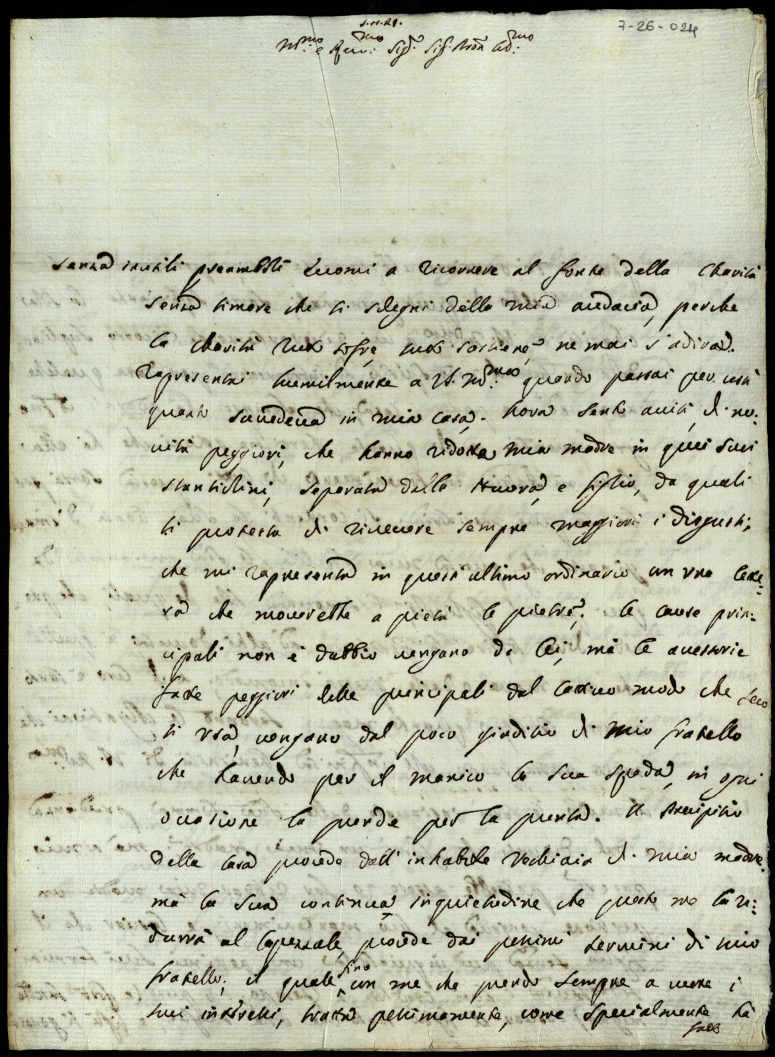 7-26-024
J.M.R.J.
Ill.mo e Rev.mo Sig.r Sig.r Pron Col.mo
Senza inutili preamboli Eccomi a ricorrere al fonte della Charità
senza timore che si sdegni della mia audacia, perche
la charità tutto soffre, tutto sostiene, ne mai s'adira.
rapresentai humilmente a V.S. Ill.ma quando passai per costì
quanto succedeva in mia casa. hora sento avisi, di no:
vità peggiori, che hanno ridotta mia madre in quei suoi
stantiolini, separata dalla Nuora, e figlio, da quali
si protesta di ricevere sempre maggiori i disgusti,
che mi rapresenta in quest'ultimo ordinario con una lette:
ra che moverebbe a pietà le pietre; le cause prin:
cipali non è dubbio vengano da lei, mà le accessorie
fatte peggiori delle principali dal cattivo modo che seco
si usa, vengano dal poco giuditio di mio fratello
che havendo per il manico la sua spada, in ogni
occasione la prende per la punta. Il precipitio
della casa procede dall'inhabile vechiaia di mia madre.
mà la sua continua inquietudine che presto me la ri:
durrà al capezzale, procede dai pessimi termini di mio
fratello; il quale fino con me che prendo sempre a cuore i
suoi interessi, tratta pessimamente, come specialmente hà
fatto